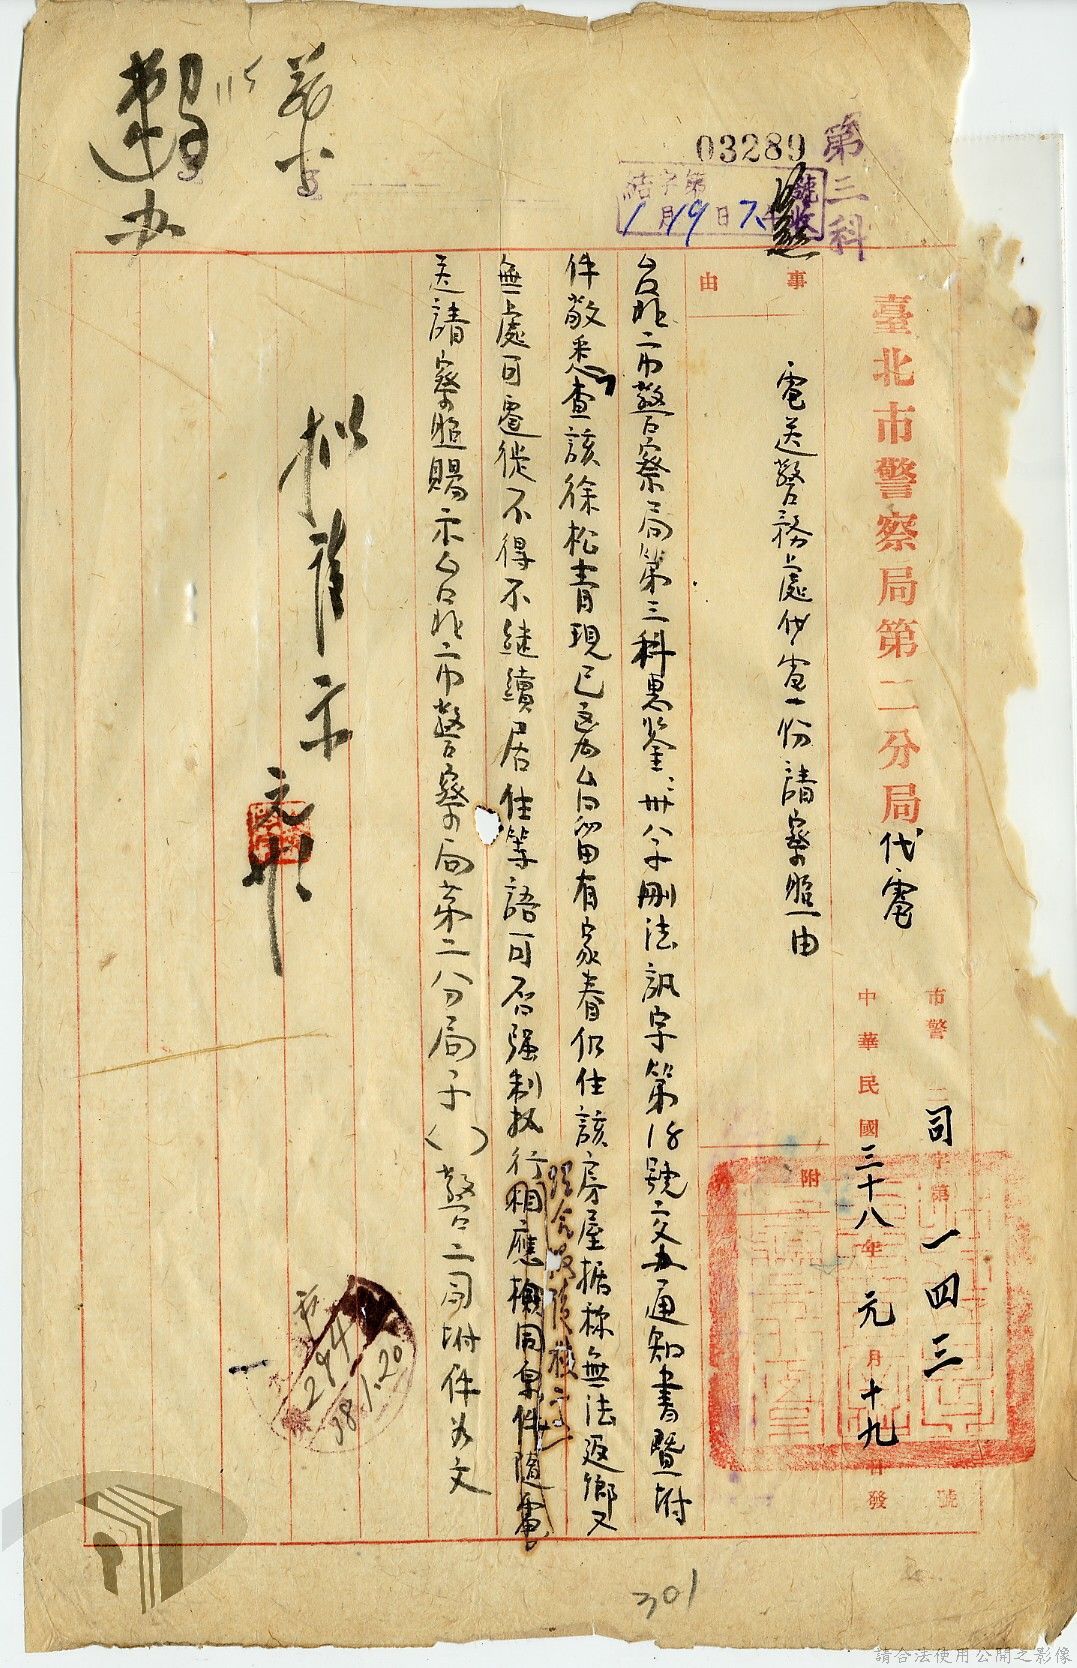 03289
第三科
結字第 號
1月19日 7
臺北市警察局第二分局代電
市警二司字第一四三號
中華民國三十八年元月十九日發
附
事由
電送警務處代電一份請察照由
台北市警察局第三科惠鑒卅八子刪法訊字第18號交办通知書暨附
件敬悉查該徐松青現已離台留有家眷仍住該房屋据称無法返鄉又
無處可遷徙不得不継續居住等語可否強制执行相應檢同原件隨電
送請察照賜示台北市警察局第二分局子( )警二司附件如文
理合
拟請示
办
294
38.1.20
一
301
請合法使用公開之影像